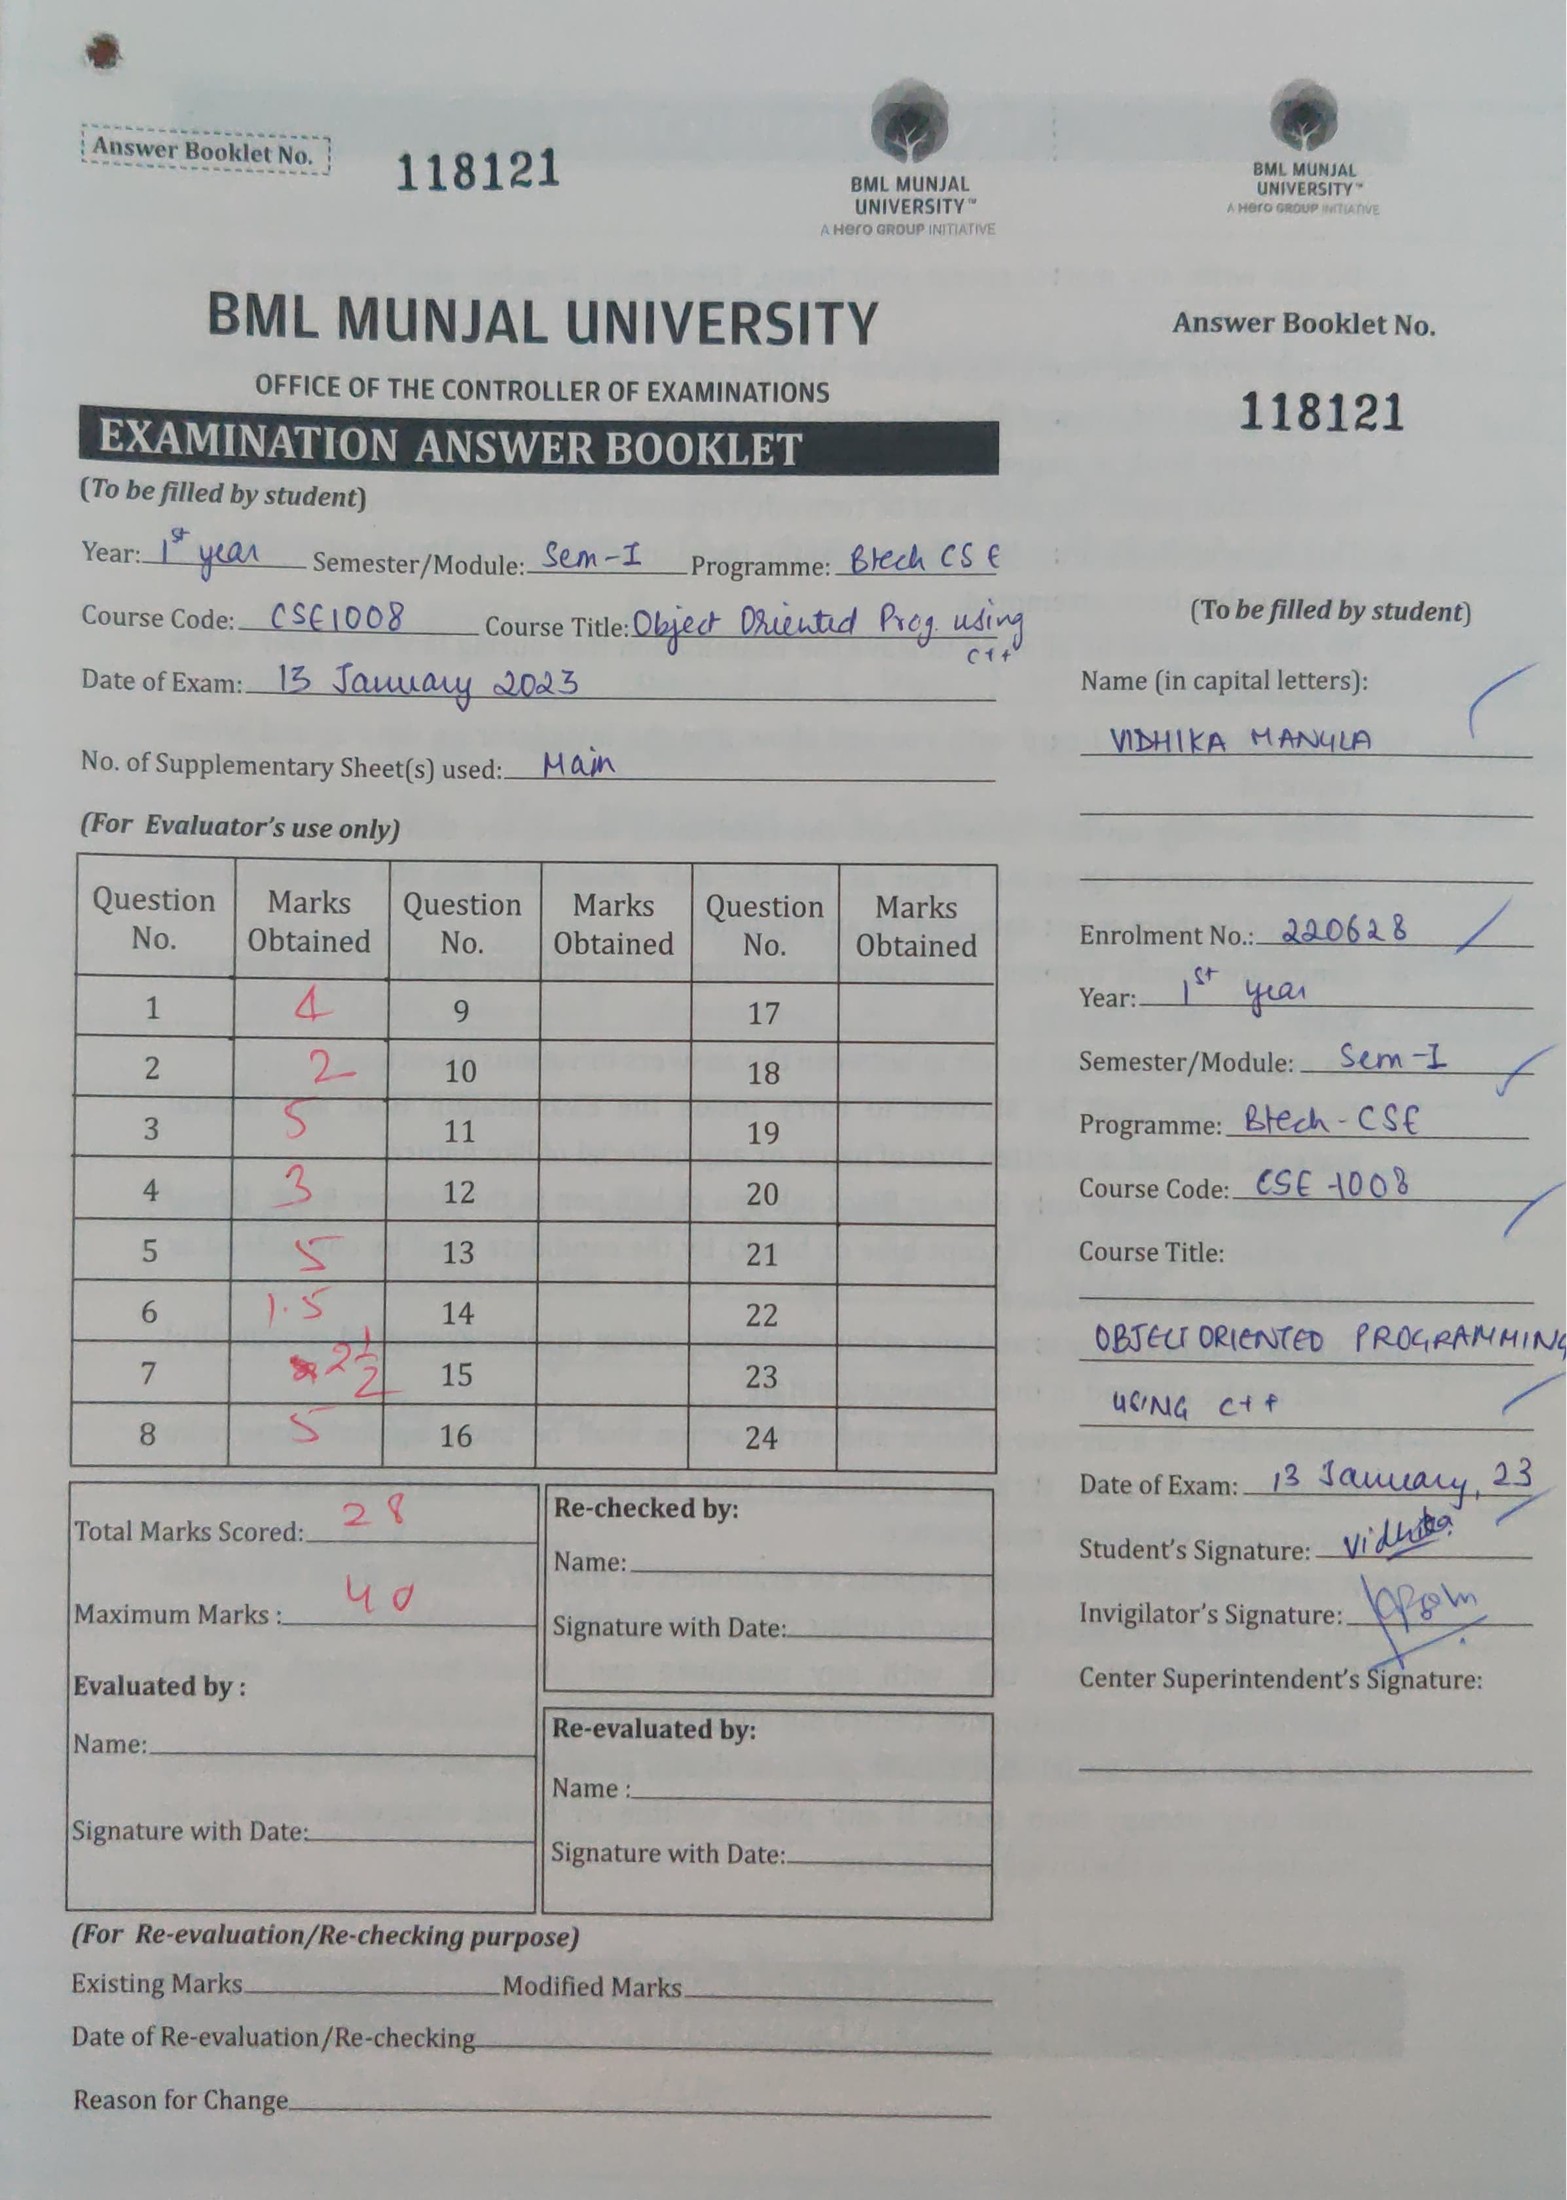 Answer Booklet No. 118121
BML MUNJAL
UNIVERSITY™
A Hero GROUP INITIATIVE
BML MUNJAL UNIVERSITY
OFFICE OF THE CONTROLLER OF EXAMINATIONS
EXAMINATION ANSWER BOOKLET
(To be filled by student)
Year: 1st year Semester/Module: Sem-I Programme: Btech CSE
Course Code: CSE1008 Course Title: Object Oriented Prog. using
C++
Date of Exam: 13 January 2023
No. of Supplementary Sheet(s) used: Main
(For Evaluator's use only)
Question No. Marks Obtained Question No. Marks Obtained Question No. Marks Obtained
1 4 9 17
2 2 10 18
3 5 11 19
4 3 12 20
5 5 13 21
6 1.5 14 22
7 2 1/2 15 23
8 5 16 24
Total Marks Scored: 28
Maximum Marks : 40
Evaluated by :
Name:
Signature with Date:
Re-checked by:
Name:
Signature with Date:
Re-evaluated by:
Name :
Signature with Date:
(For Re-evaluation/Re-checking purpose)
Existing Marks Modified Marks
Date of Re-evaluation/Re-checking
Reason for Change
BML MUNJAL
UNIVERSITY™
A Hero GROUP INITIATIVE
Answer Booklet No.
118121
(To be filled by student)
Name (in capital letters):
VIDHIKA
Enrolment No.: 220628
Year: 1st year
Semester/Module: Sem-I
Programme: Btech-CSE
Course Code: CSE-1008
Course Title:
OBJECT ORIENTED PROGRAMMING
USING C++
Date of Exam: 13 January, 23
Student's Signature: Vidhika
Invigilator's Signature:
Center Superintendent's Signature: